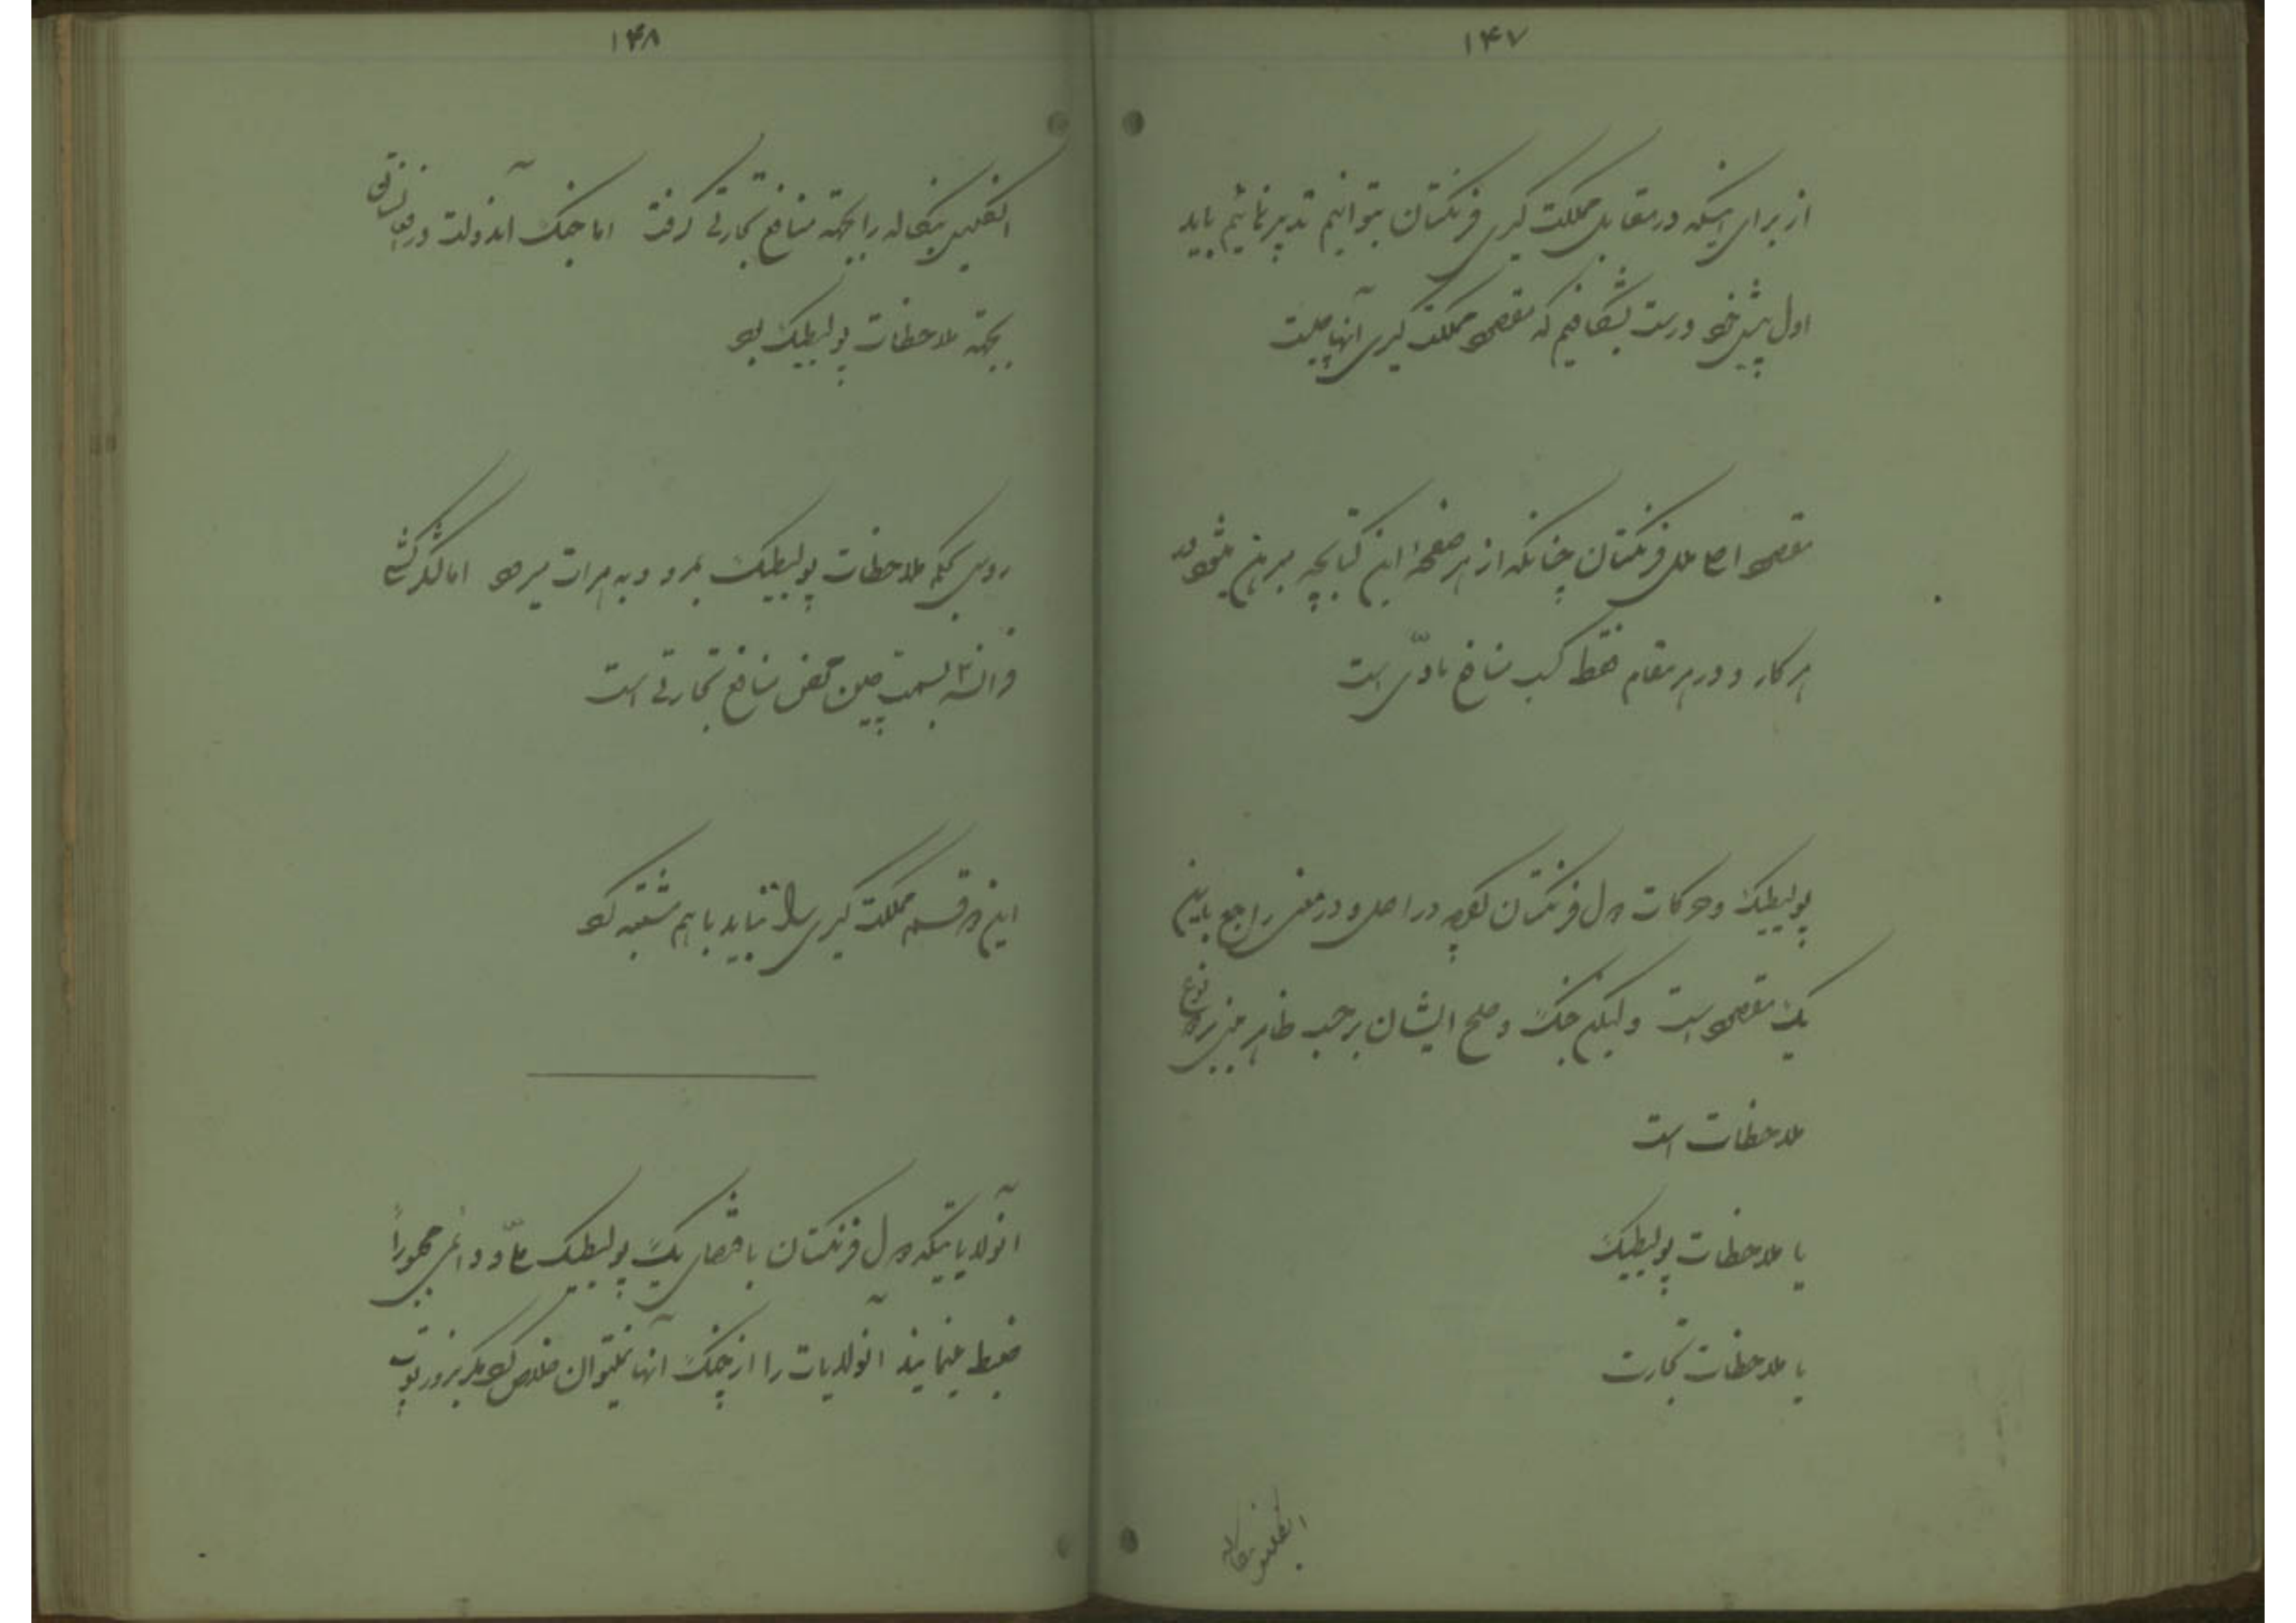 ۱۴۷
از برای اینکه در مقابل مملکت گیری فرنگستان بتوانیم تدبیر نمائیم باید
اول پیش خود درست بشکافیم که مقصود مملکت گیری آنها چیست
مقصود اصل ملل فرنگستان چنانکه از هر صفحهٔ این کتابچه مبرهن میشود در
هر کار و در هر مقام فقط کسب منافع مادّی است
پولیطیک و حرکات دول فرنگستان اگرچه در اصل و در معنی راجع باین
یک مقصود است ولیکن جنگ و صلح ایشان برحسب ظاهر مبنی بر دو نوع
ملاحظات است
یا ملاحظات پولیطیک
یا ملاحظات تجارت
انگلیس بنگاله
۱۴۸
انگلیس بنگاله را بجهته منافع تجارتی گرفت اما جنگ آندولت در افغانستان
بجهته ملاحظات پولیطیک بود
روس بحکم ملاحظات پولیطیک بمرو و به هرات میرود اما لشکر کشی
فرانسه بسمت چین محض منافع تجارتی است
این دو قسم مملکت گیری را نباید باهم مشتبه کرد
آنولایاتیکه دول فرنگستان باقتضای یک پولیطیک عمده و دائمی مجبوراً
ضبط مینمایند آنولایات را از چنگ آنها نمیتوان خلاص کرد مگر بزور توپ